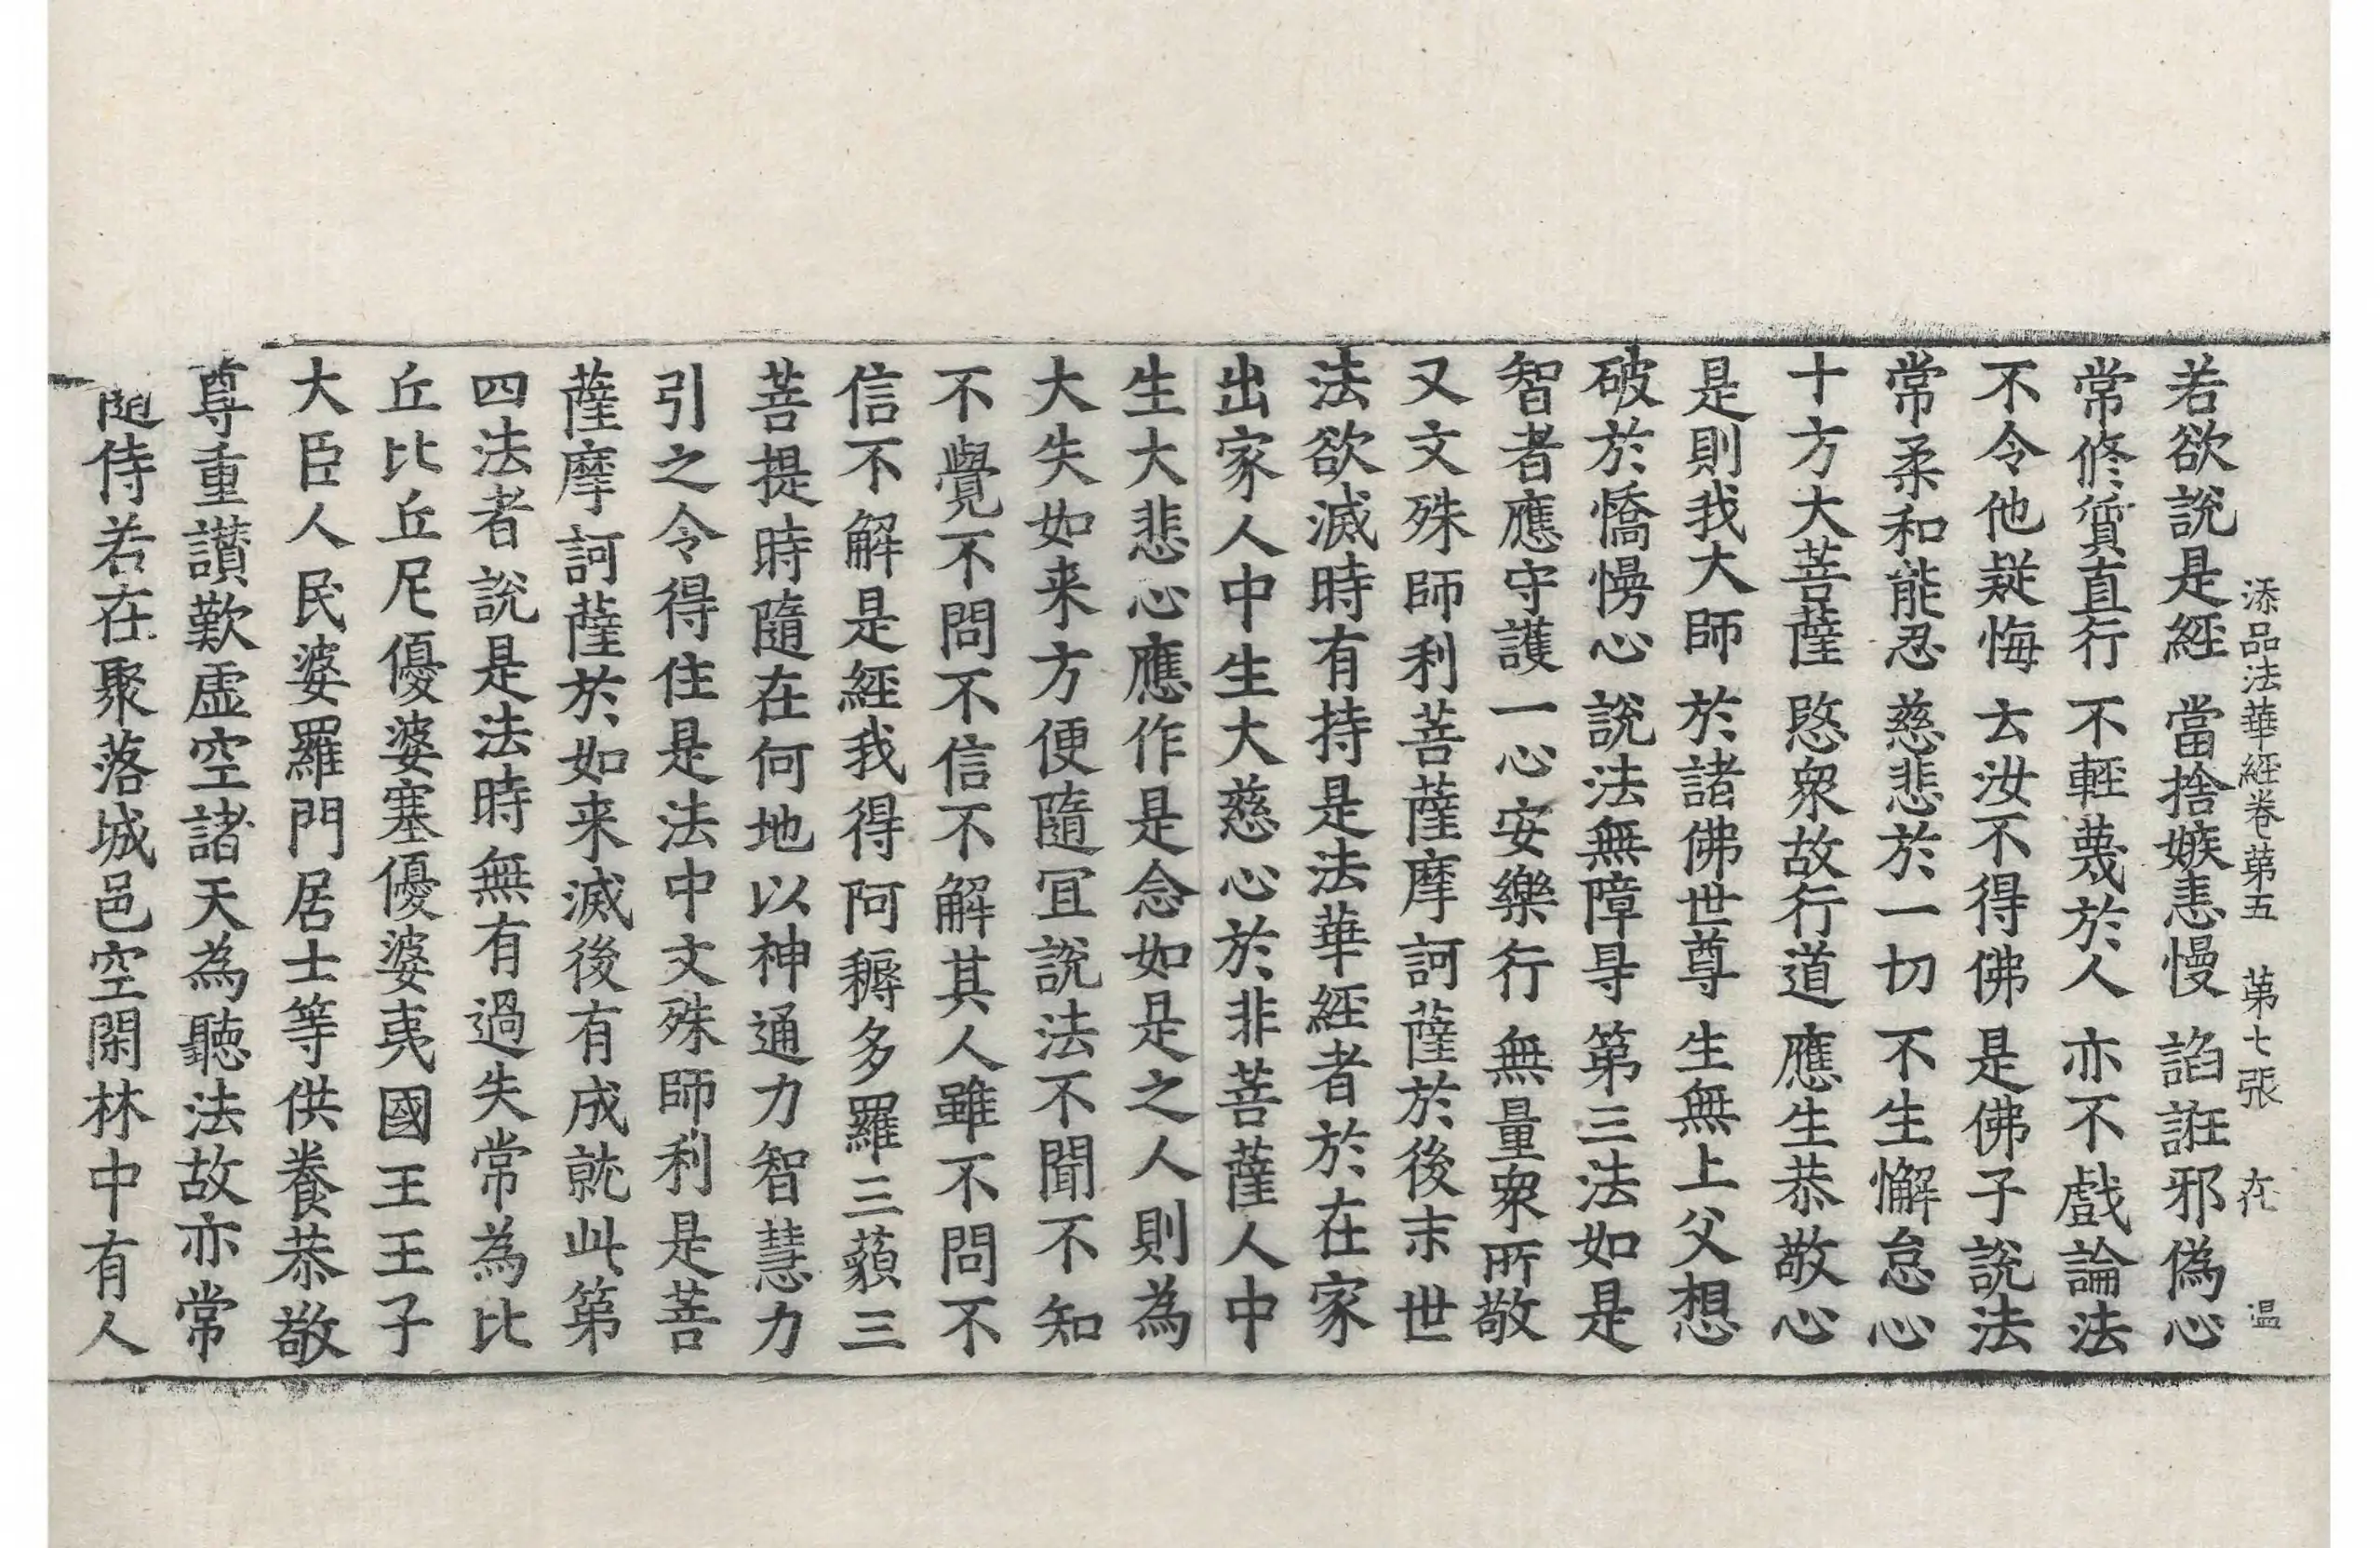 添品法華経卷第五 第七張 在 温
若欲説是經 當捨嫉恚慢 諂誑邪偽心
常修質直行 不輕蔑於人 亦不戲論法
不令他疑悔 去汝不得佛 是佛子説法
常柔和能忍 慈悲於一切 不生懈怠心
十方大菩薩 愍衆故行道 應生恭敬心
是則我大師 於諸佛世尊 生無上父想
破於憍慢心 説法無障㝵 第三法如是
智者應守護 一心安樂行 無量衆所敬
又文殊師利菩薩摩訶薩於後末世
法欲滅時有持是法華經者於在家
出家人中生大慈心於非菩薩人中
生大悲心應作是念如是之人則為
大失如来方便隨冝説法不聞不知
不覺不問不信不解其人雖不問不
信不解是經我得阿耨多羅三藐三
菩提時隨在何地以神通力智慧力
引之令得住是法中文殊師利是菩
薩摩訶薩於如来滅後有成就此第
四法者説是法時無有過失常為比
丘比丘尼優婆塞優婆夷國王王子
大臣人民婆羅門居士等供養恭敬
尊重讃歎虚空諸天為聽法故亦常
随侍若在聚落城邑空閑林中有人